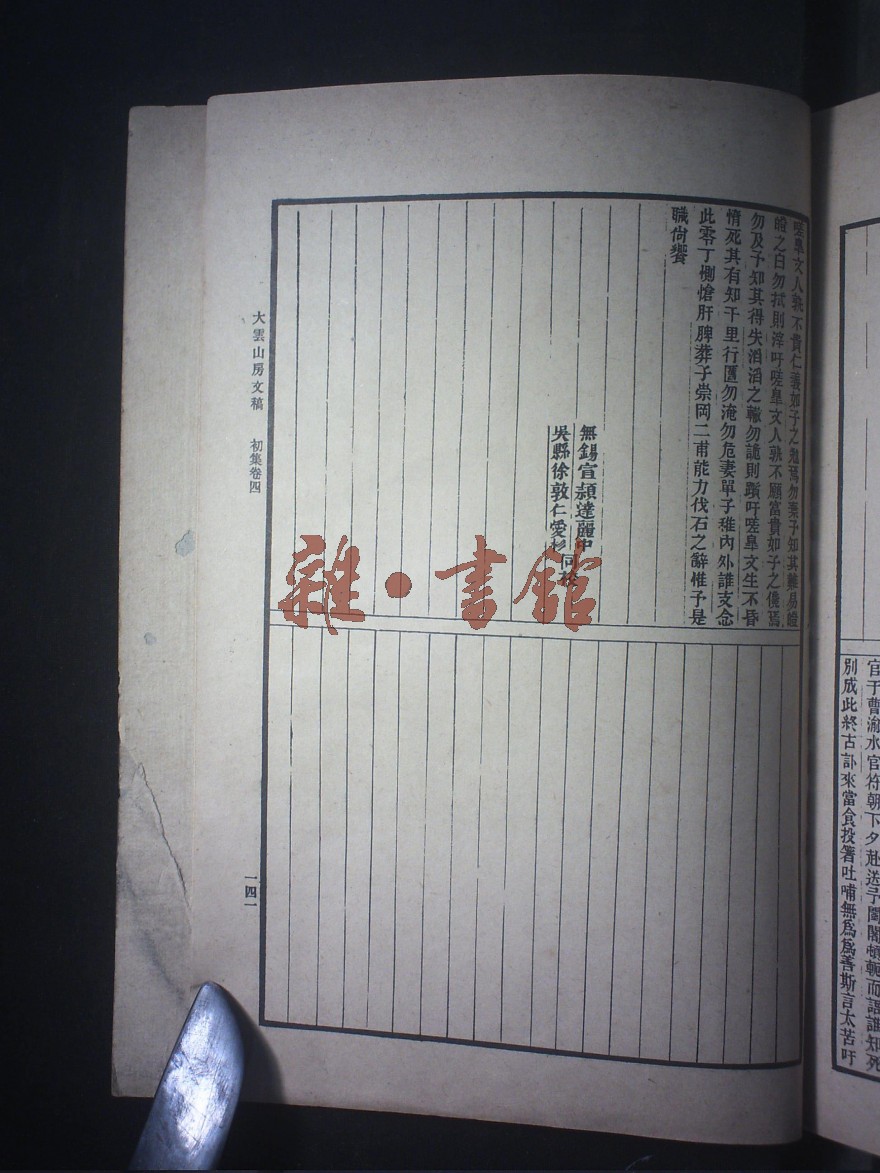 官于曹渝水官符朝下夕赴送子閶閭頓軛而語誰知死
別成此終古訃來當食投箸吐哺無為為善斯言太苦吁
嗟臯文人孰不貴仁義如子之勉焉勿棄子知其難易皚
皚之白勿拭則滓吁嗟臯文人孰不願富貴如子之儻焉
勿及予知其得失滔滔之轍勿詭則躓吁嗟臯文生不昏
惰死其有知千里行匶勿淹勿危妻單子稚內外誰支念
此零丁惻愴肝脾葬子崇岡二甫能力伐石之辭惟予是
職尙饗
無錫宣潁達麗中
吳縣徐敦仁愛杉同校
大雲山房文稿 初集卷四
一四一
雜·書館